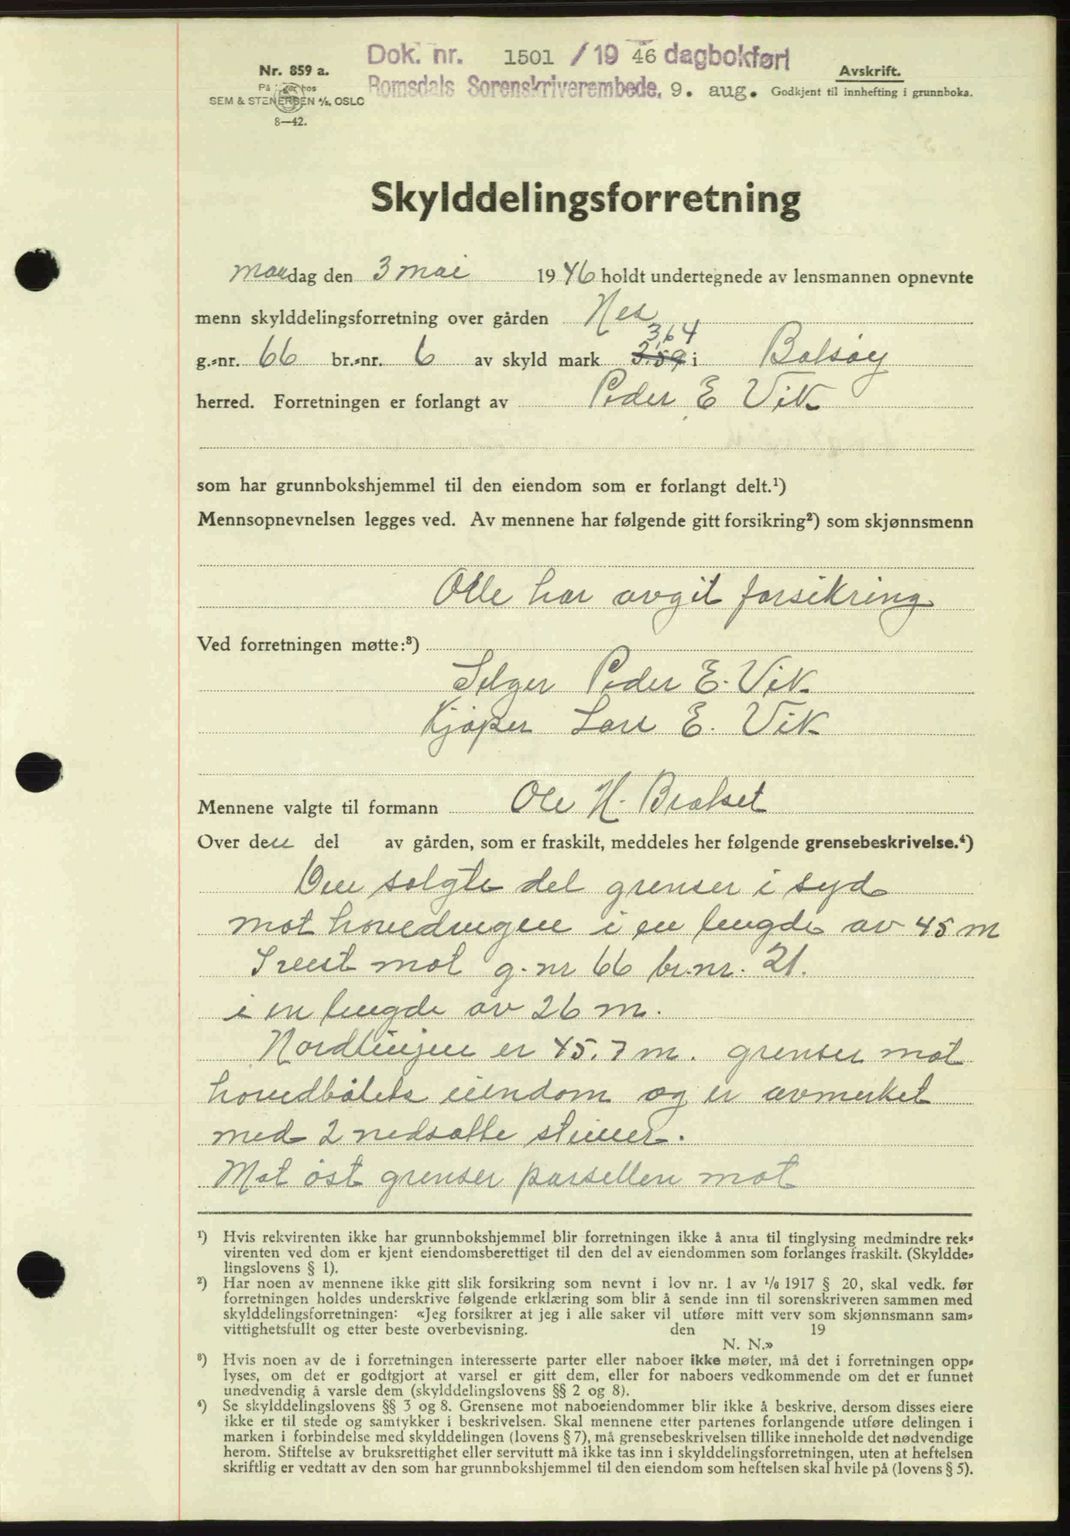 Dok. nr. 1501 / 19 46 dagbokført
Romsdals Sorenskriverembede, 9. aug.
Nr. 859 a.
På hos
SEM & STENERSEN A/S, OSLO
8—42.
Avskrift.
Godkjent til innhefting i grunnboka.
Skylddelingsforretning
dag den 3 mai 1946 holdt undertegnede av lensmannen opnevnte
menn skylddelingsforretning over gården Nes
3,64
g.-nr. 66 br.-nr. 6 av skyld mark 2.59 i Bolsøy
herred. Forretningen er forlangt av Peder E Vik
som har grunnbokshjemmel til den eiendom som er forlangt delt.¹)
Mennsopnevnelsen legges ved. Av mennene har følgende gitt forsikring²) som skjønnsmenn
Olle har avgit forsikring
Ved forretningen møtte:³)
Selger Peder E. Vik
Kjøper Lars E. Vik
Mennene valgte til formann Ole H. Brakset
Over den del av gården, som er fraskilt, meddeles her følgende grensebeskrivelse.⁴)
Den solgte del grenser i syd
mot hovedvegen i en lengde av 45 m
I vest mot g.nr 66 br.nr. 21.
i en lengde av 26 m.
Nordlinjen er 45.7 m. grenser mot
hovedbølets eiendom og er avmerket
med 2 nedsatte steiner.
Mot øst grenser parsellen mot
¹) Hvis rekvirenten ikke har grunnbokshjemmel blir forretningen ikke å anta til tinglysing medmindre rek-
virenten ved dom er kjent eiendomsberettiget til den del av eiendommen som forlanges fraskilt. (Skyldde-
lingslovens § 1).
²) Har noen av mennene ikke gitt slik forsikring som nevnt i lov nr. 1 av 1/6 1917 § 20, skal vedk. før
forretningen holdes underskrive følgende erklæring som blir å sende inn til sorenskriveren sammen med
skylddelingsforretningen: «Jeg forsikrer at jeg i alle saker vil utføre mitt verv som skjønnsmann sam-
vittighetsfullt og etter beste overbevisning. den 19
N. N.»
³) Hvis noen av de i forretningen interesserte parter eller naboer ikke møter, må det i forretningen opp-
lyses, om det er godtgjort at varsel er gitt dem, eller for naboers vedkommende om det er funnet
unødvendig å varsle dem (skylddelingslovens §§ 2 og 8).
⁴) Se skylddelingslovens §§ 3 og 8. Grensene mot naboeiendommer blir ikke å beskrive, dersom disses eiere
ikke er til stede og samtykker i beskrivelsen. Skal mennene etter partenes forlangende utføre delingen i
marken i forbindelse med skylddelingen (lovens § 7), må grensebeskrivelsen tillike inneholde det nødvendige
herom. Stiftelse av bruksrettighet eller servitutt må ikke tas inn i skylddelingsforretningen, uten at heftelsen
skriftlig er vedtatt av den som har grunnbokshjemmel til den eiendom som heftelsen skal hvile på (lovens § 5).